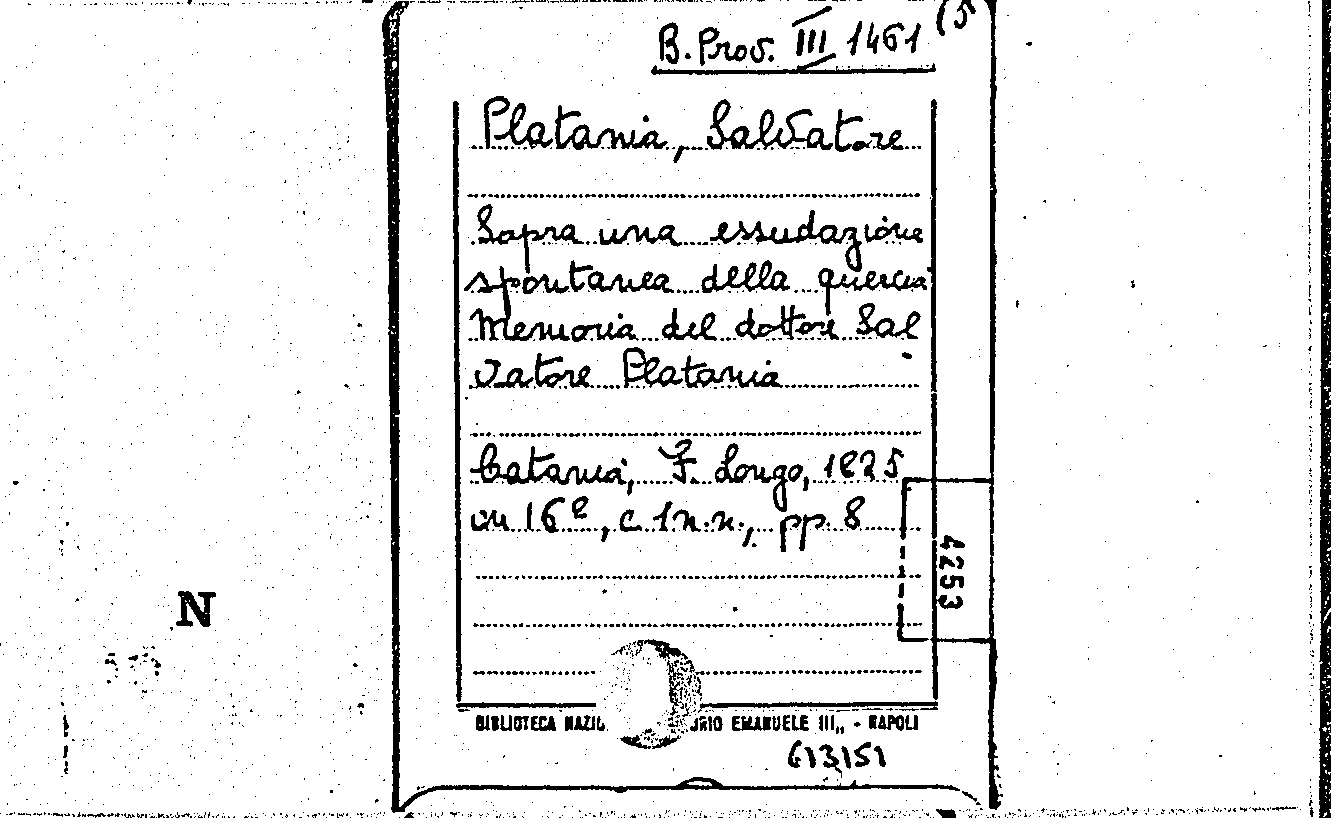 B. Prov. III 1461 (5
Platania, Salvatore
Sopra una essudazione
spontanea della quercia
Memoria del dottore Sal
vatore Platania
Catania, F. Longo, 1825
in 16º, c. 1 n.n., pp. 8
4253
N
BIBLIOTECA NAZI ORIO EMANUELE III,, - NAPOLI
613151